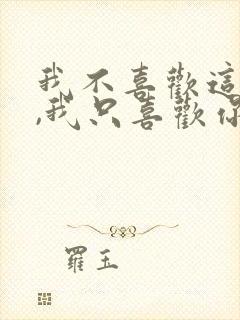 我不喜歡這
,我只喜歡你
羅玉